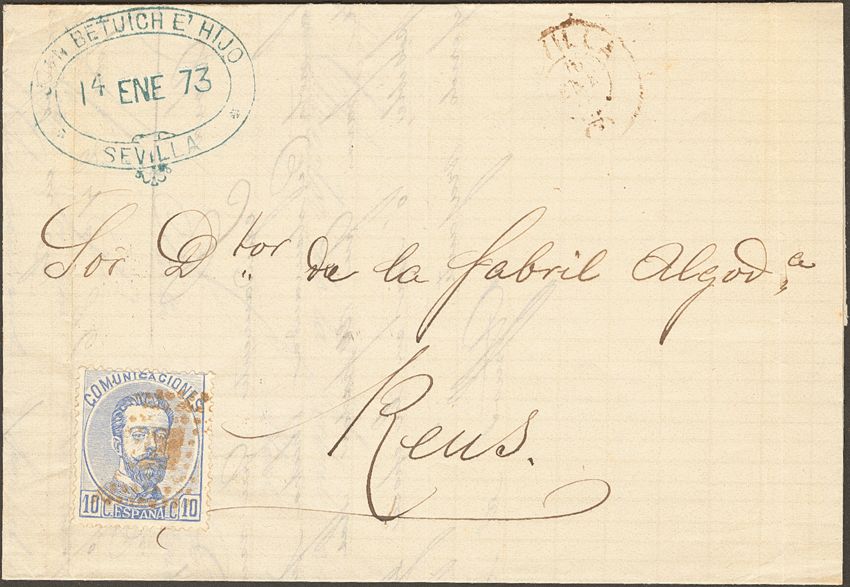 JUAN BETUICH E' HIJO
14 ENE 73
SEVILLA
Sor. D.tor de la fabril Algod.a
Reus.
COMUNICACIONES
10 C. ESPAÑA C. 10